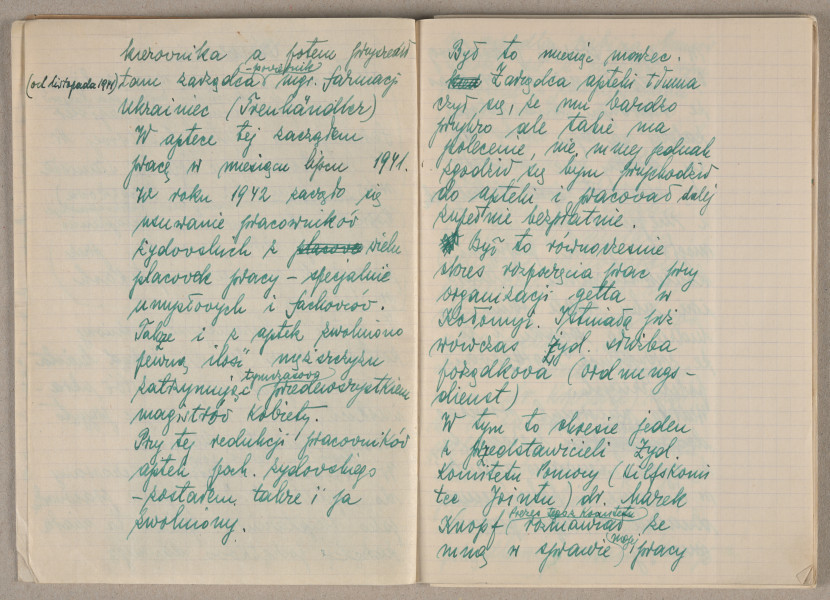 kierownika a potem przyszedł
(od listopada 1941) tam zarządca-powiernik mgr. farmacji
Ukrainiec (Treuhändler)
W aptece tej zacząłem
pracę w miesiącu lipcu 1941.
W roku 1942 zaczęło się
usuwanie pracowników
żydowskich z placowe wielu
placówek pracy – specjalnie
umysłowych i fachowców.
Także i z aptek zwolniono
pewną ilość mężczyzn
zatrzymując tymczasowo przedewszystkiem
magistrów kobiety.
Przy tej redukcji pracowników
aptek poch. żydowskiego
– zostałem także i ja
zwolniony.
Był to miesiąc marzec.
Zarządca apteki tłuma
czył się, że mu bardzo
przykro ale takie ma
polecenie, nie mniej jednak
zgodził się bym przychodził
do apteki i pracował dalej
zupełnie bezpłatnie.
Był to równocześnie
okres rozpoczęcia prac przy
organizacji getta w
Kołomyi. Istniała już
wówczas żyd. służba
porządkowa (ordnungs-
dienst)
W tym to okresie jeden
z przedstawicieli żyd.
Komitetu Pomocy (Hilfskomi
tee Jointu) dr. Marek
Knopf prezes tegoż Komitetu rozmawiał ze
mną w sprawie mojej pracy